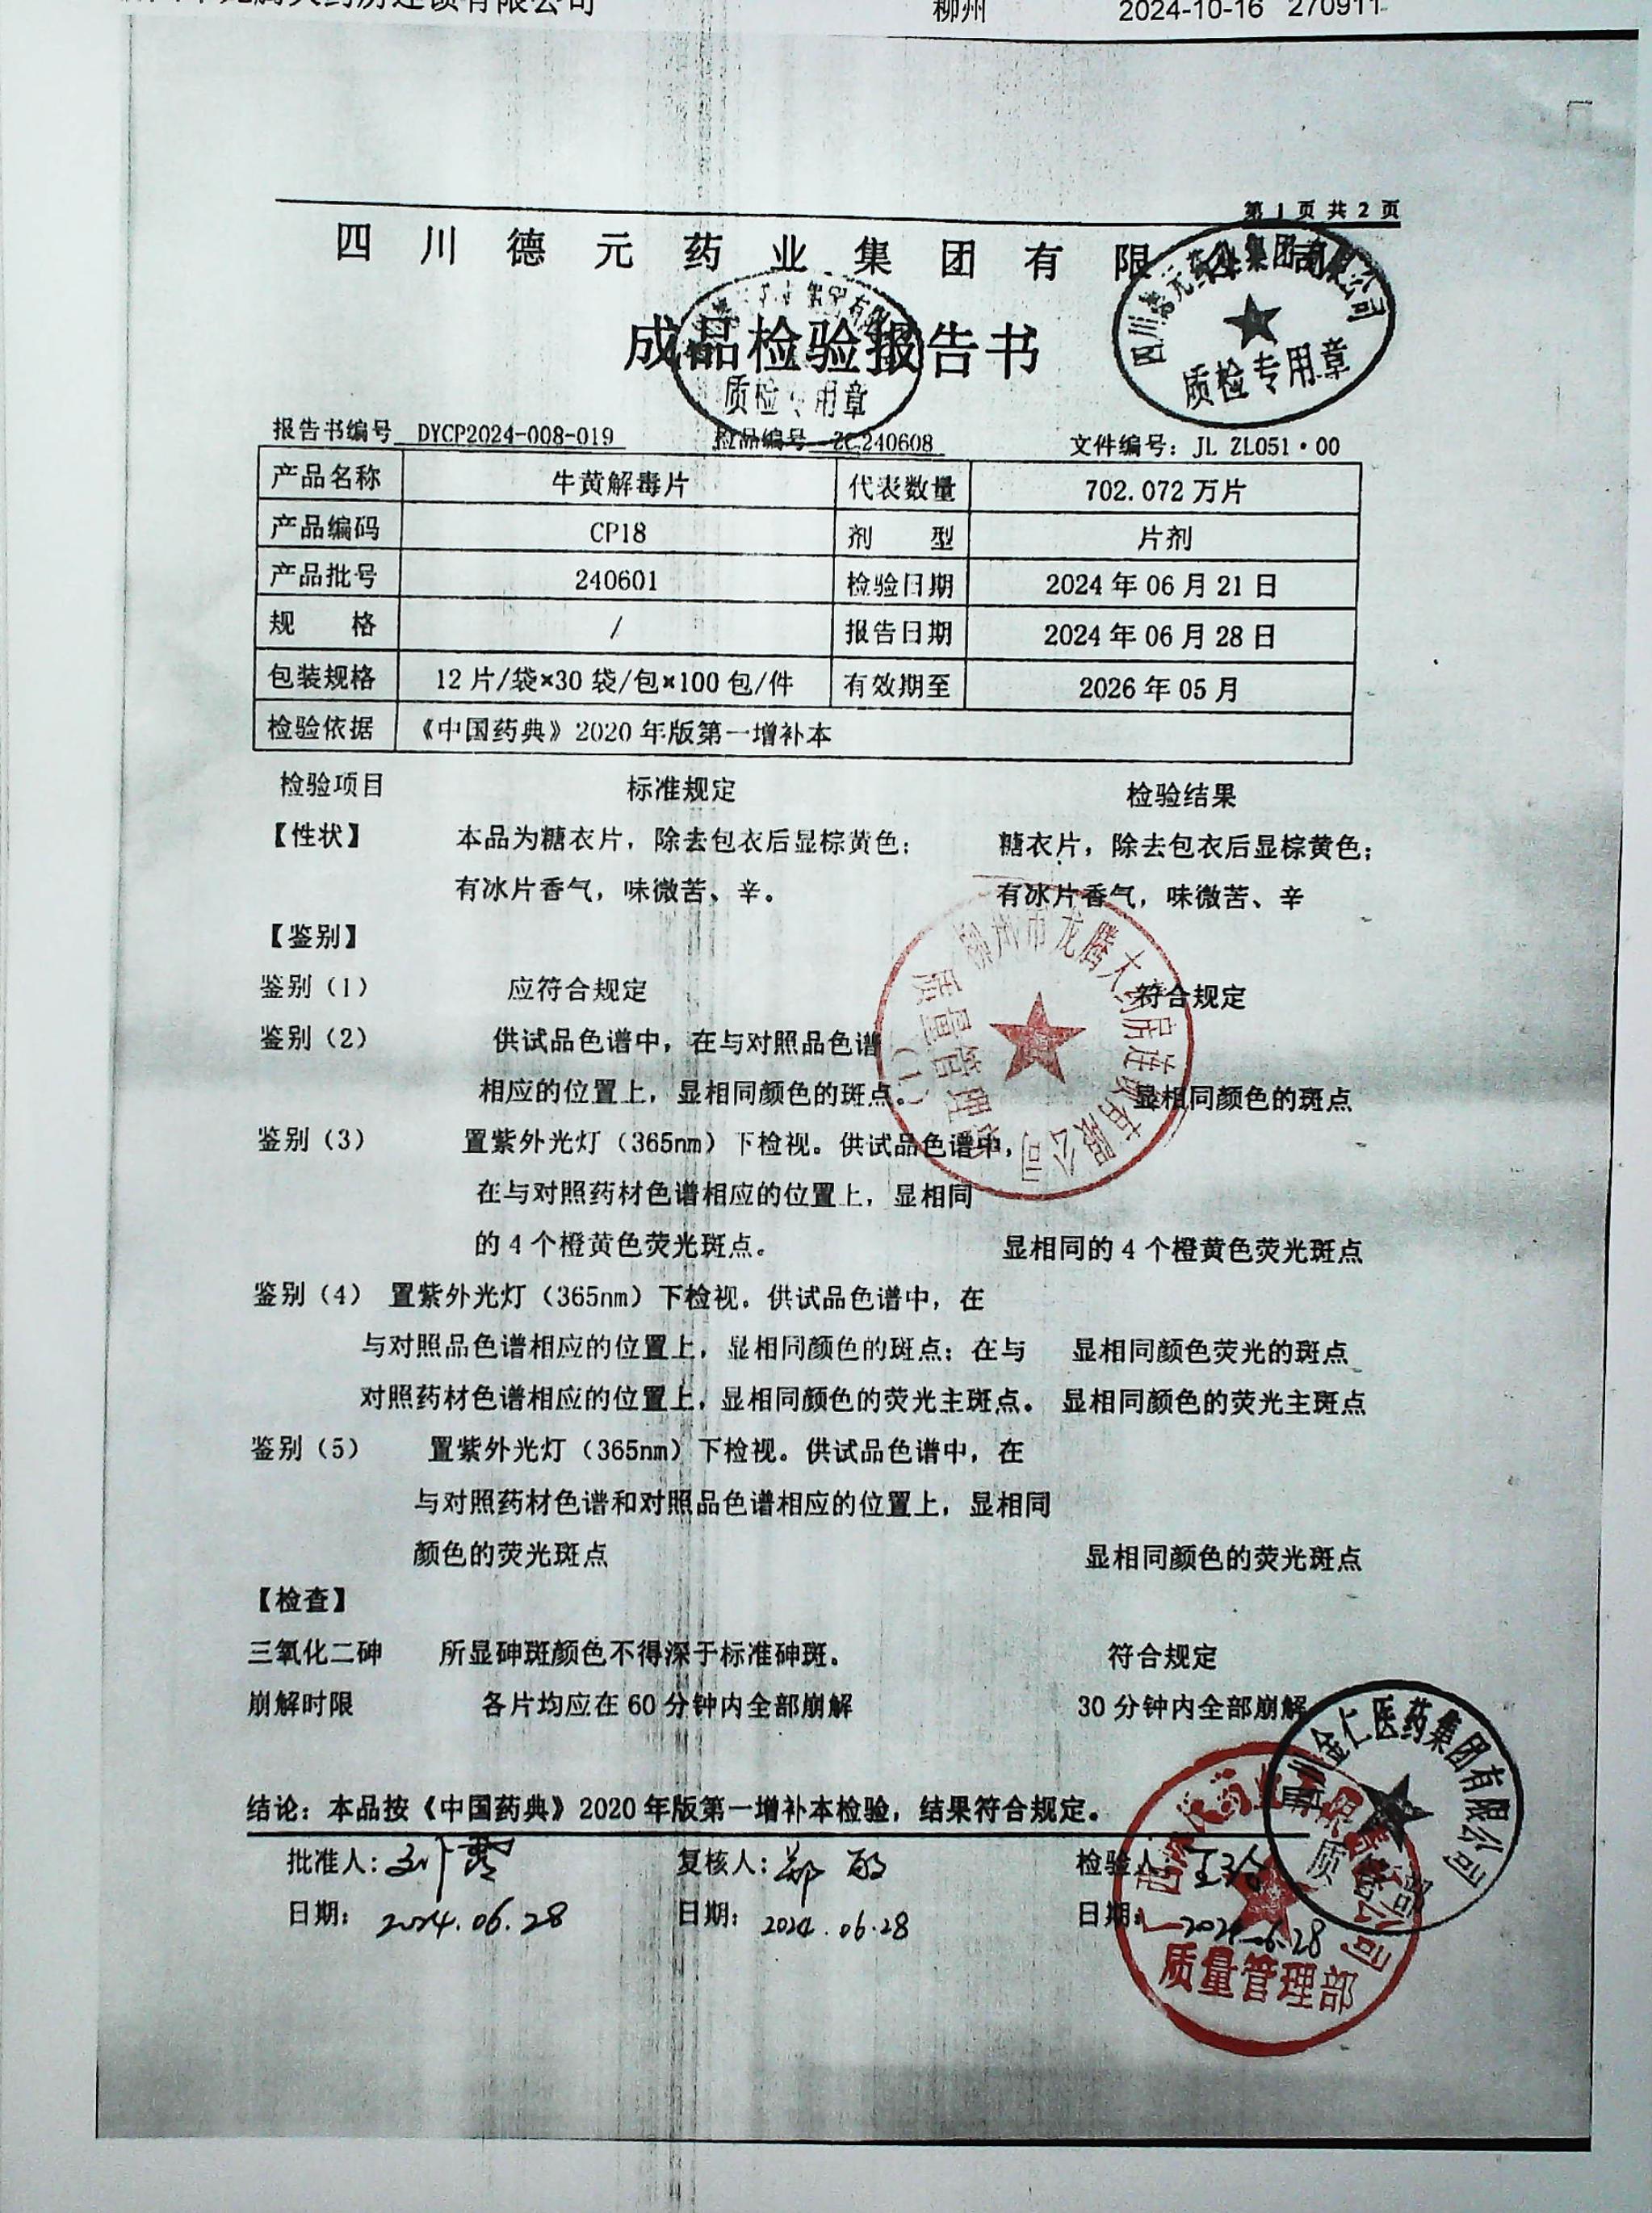 柳州 2024-10-16 270911
第 1 页 共 2 页
四川德元药业集团有限公司
成品检验报告书
报告书编号 DYCP2024-008-019 检品编号 ZC240608 文件编号：JL ZL051·00
产品名称 牛黄解毒片 代表数量 702.072 万片
产品编码 CP18 剂 型 片剂
产品批号 240601 检验日期 2024 年 06 月 21 日
规 格 / 报告日期 2024 年 06 月 28 日
包装规格 12 片/袋×30 袋/包×100 包/件 有效期至 2026 年 05 月
检验依据 《中国药典》2020 年版第一增补本
检验项目 标准规定 检验结果
【性状】 本品为糖衣片，除去包衣后显棕黄色； 糖衣片，除去包衣后显棕黄色；
有冰片香气，味微苦、辛。 有冰片香气，味微苦、辛
【鉴别】
鉴别（1） 应符合规定 符合规定
鉴别（2） 供试品色谱中，在与对照品色谱
相应的位置上，显相同颜色的斑点。 显相同颜色的斑点
鉴别（3） 置紫外光灯（365nm）下检视。供试品色谱中，
在与对照药材色谱相应的位置上，显相同
的 4 个橙黄色荧光斑点。 显相同的 4 个橙黄色荧光斑点
鉴别（4） 置紫外光灯（365nm）下检视。供试品色谱中，在
与对照品色谱相应的位置上，显相同颜色的斑点；在与 显相同颜色荧光的斑点
对照药材色谱相应的位置上，显相同颜色的荧光主斑点。 显相同颜色的荧光主斑点
鉴别（5） 置紫外光灯（365nm）下检视。供试品色谱中，在
与对照药材色谱和对照品色谱相应的位置上，显相同
颜色的荧光斑点 显相同颜色的荧光斑点
【检查】
三氧化二砷 所显砷斑颜色不得深于标准砷斑。 符合规定
崩解时限 各片均应在 60 分钟内全部崩解 30 分钟内全部崩解
结论：本品按《中国药典》2020 年版第一增补本检验，结果符合规定。
批准人： 复核人： 检验人：
日期：2024.06.28 日期：2024.06.28 日期：
四川德元药业集团有限公司
质检专用章
质检专用章
柳州市龙腾大药房连锁有限公司
质量管理部
（1）
四川金仁医药集团有限公司
质量管理部